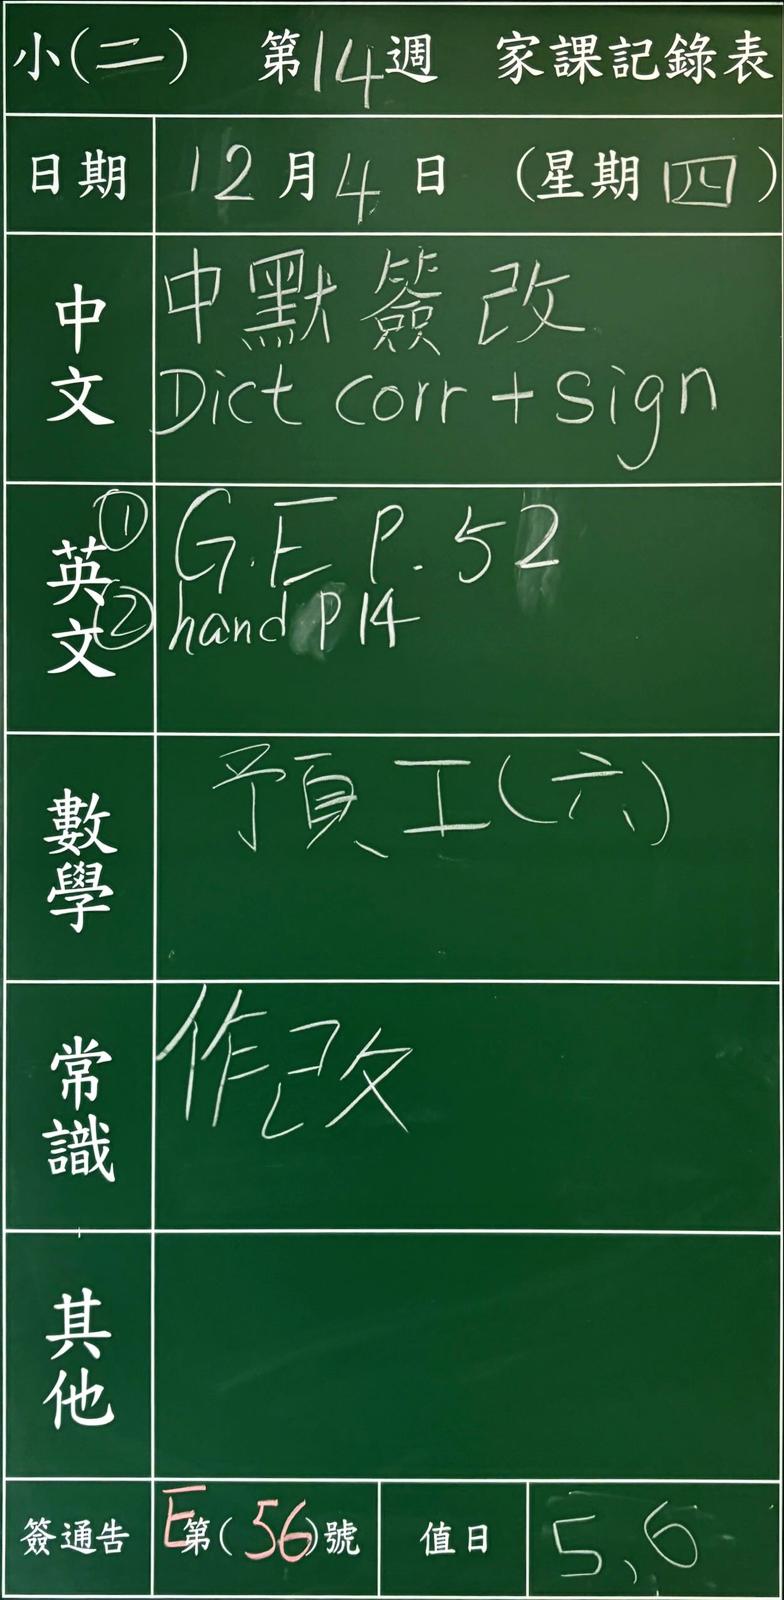 小(二) 第14週 家課記錄表
日期 12月4日 (星期四)
中文 中默簽改
Dict corr + sign
英文 ① G.E P. 52
② hand P 14
數學 預工(六)
常識 作改
其他
簽通告 E第(56)號 值日 5、6